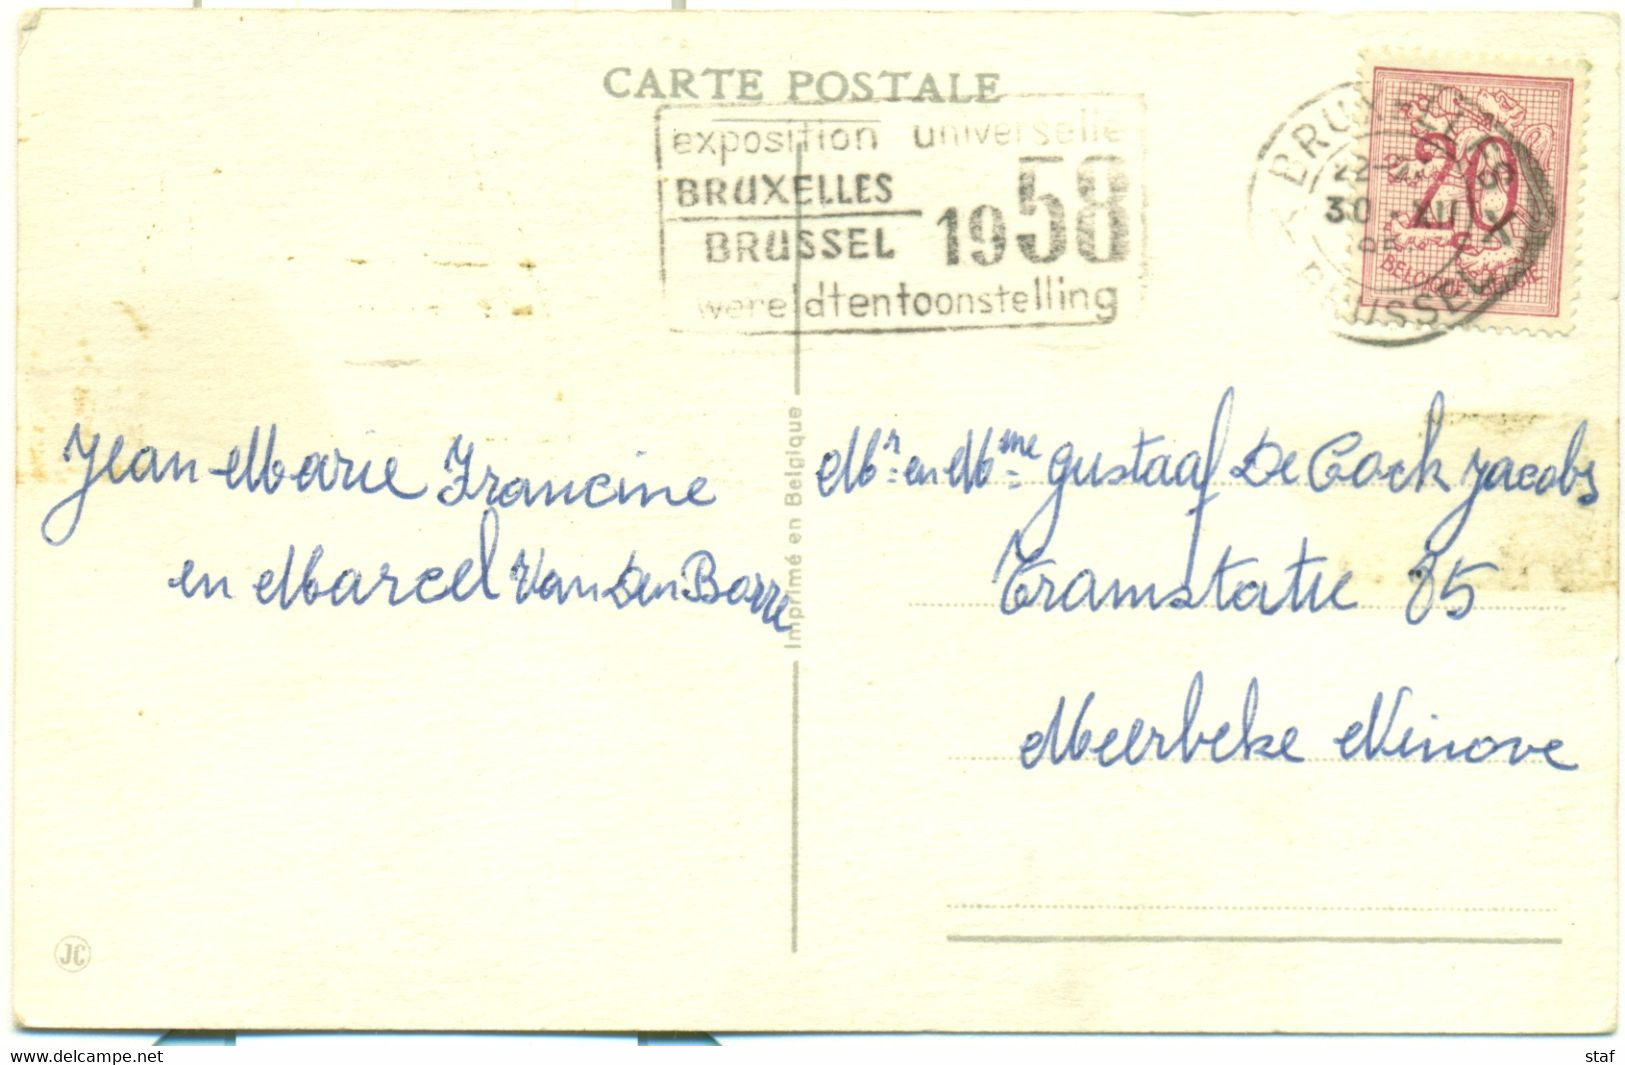 CARTE POSTALE
exposition universelle
BRUXELLES
BRUSSEL 1958
wereldtentoonstelling
BRUXELLES
30 XII
BRUSSEL
20
BELGIQUE BELGIE
Jean Marie Francine
en Marcel Van Den Borre
Imprimé en Belgique
Mr en Mme Gustaaf De Cock Jacobs
Tramstatie 85
Meerbeke Ninove
JC
www.delcampe.net
staf